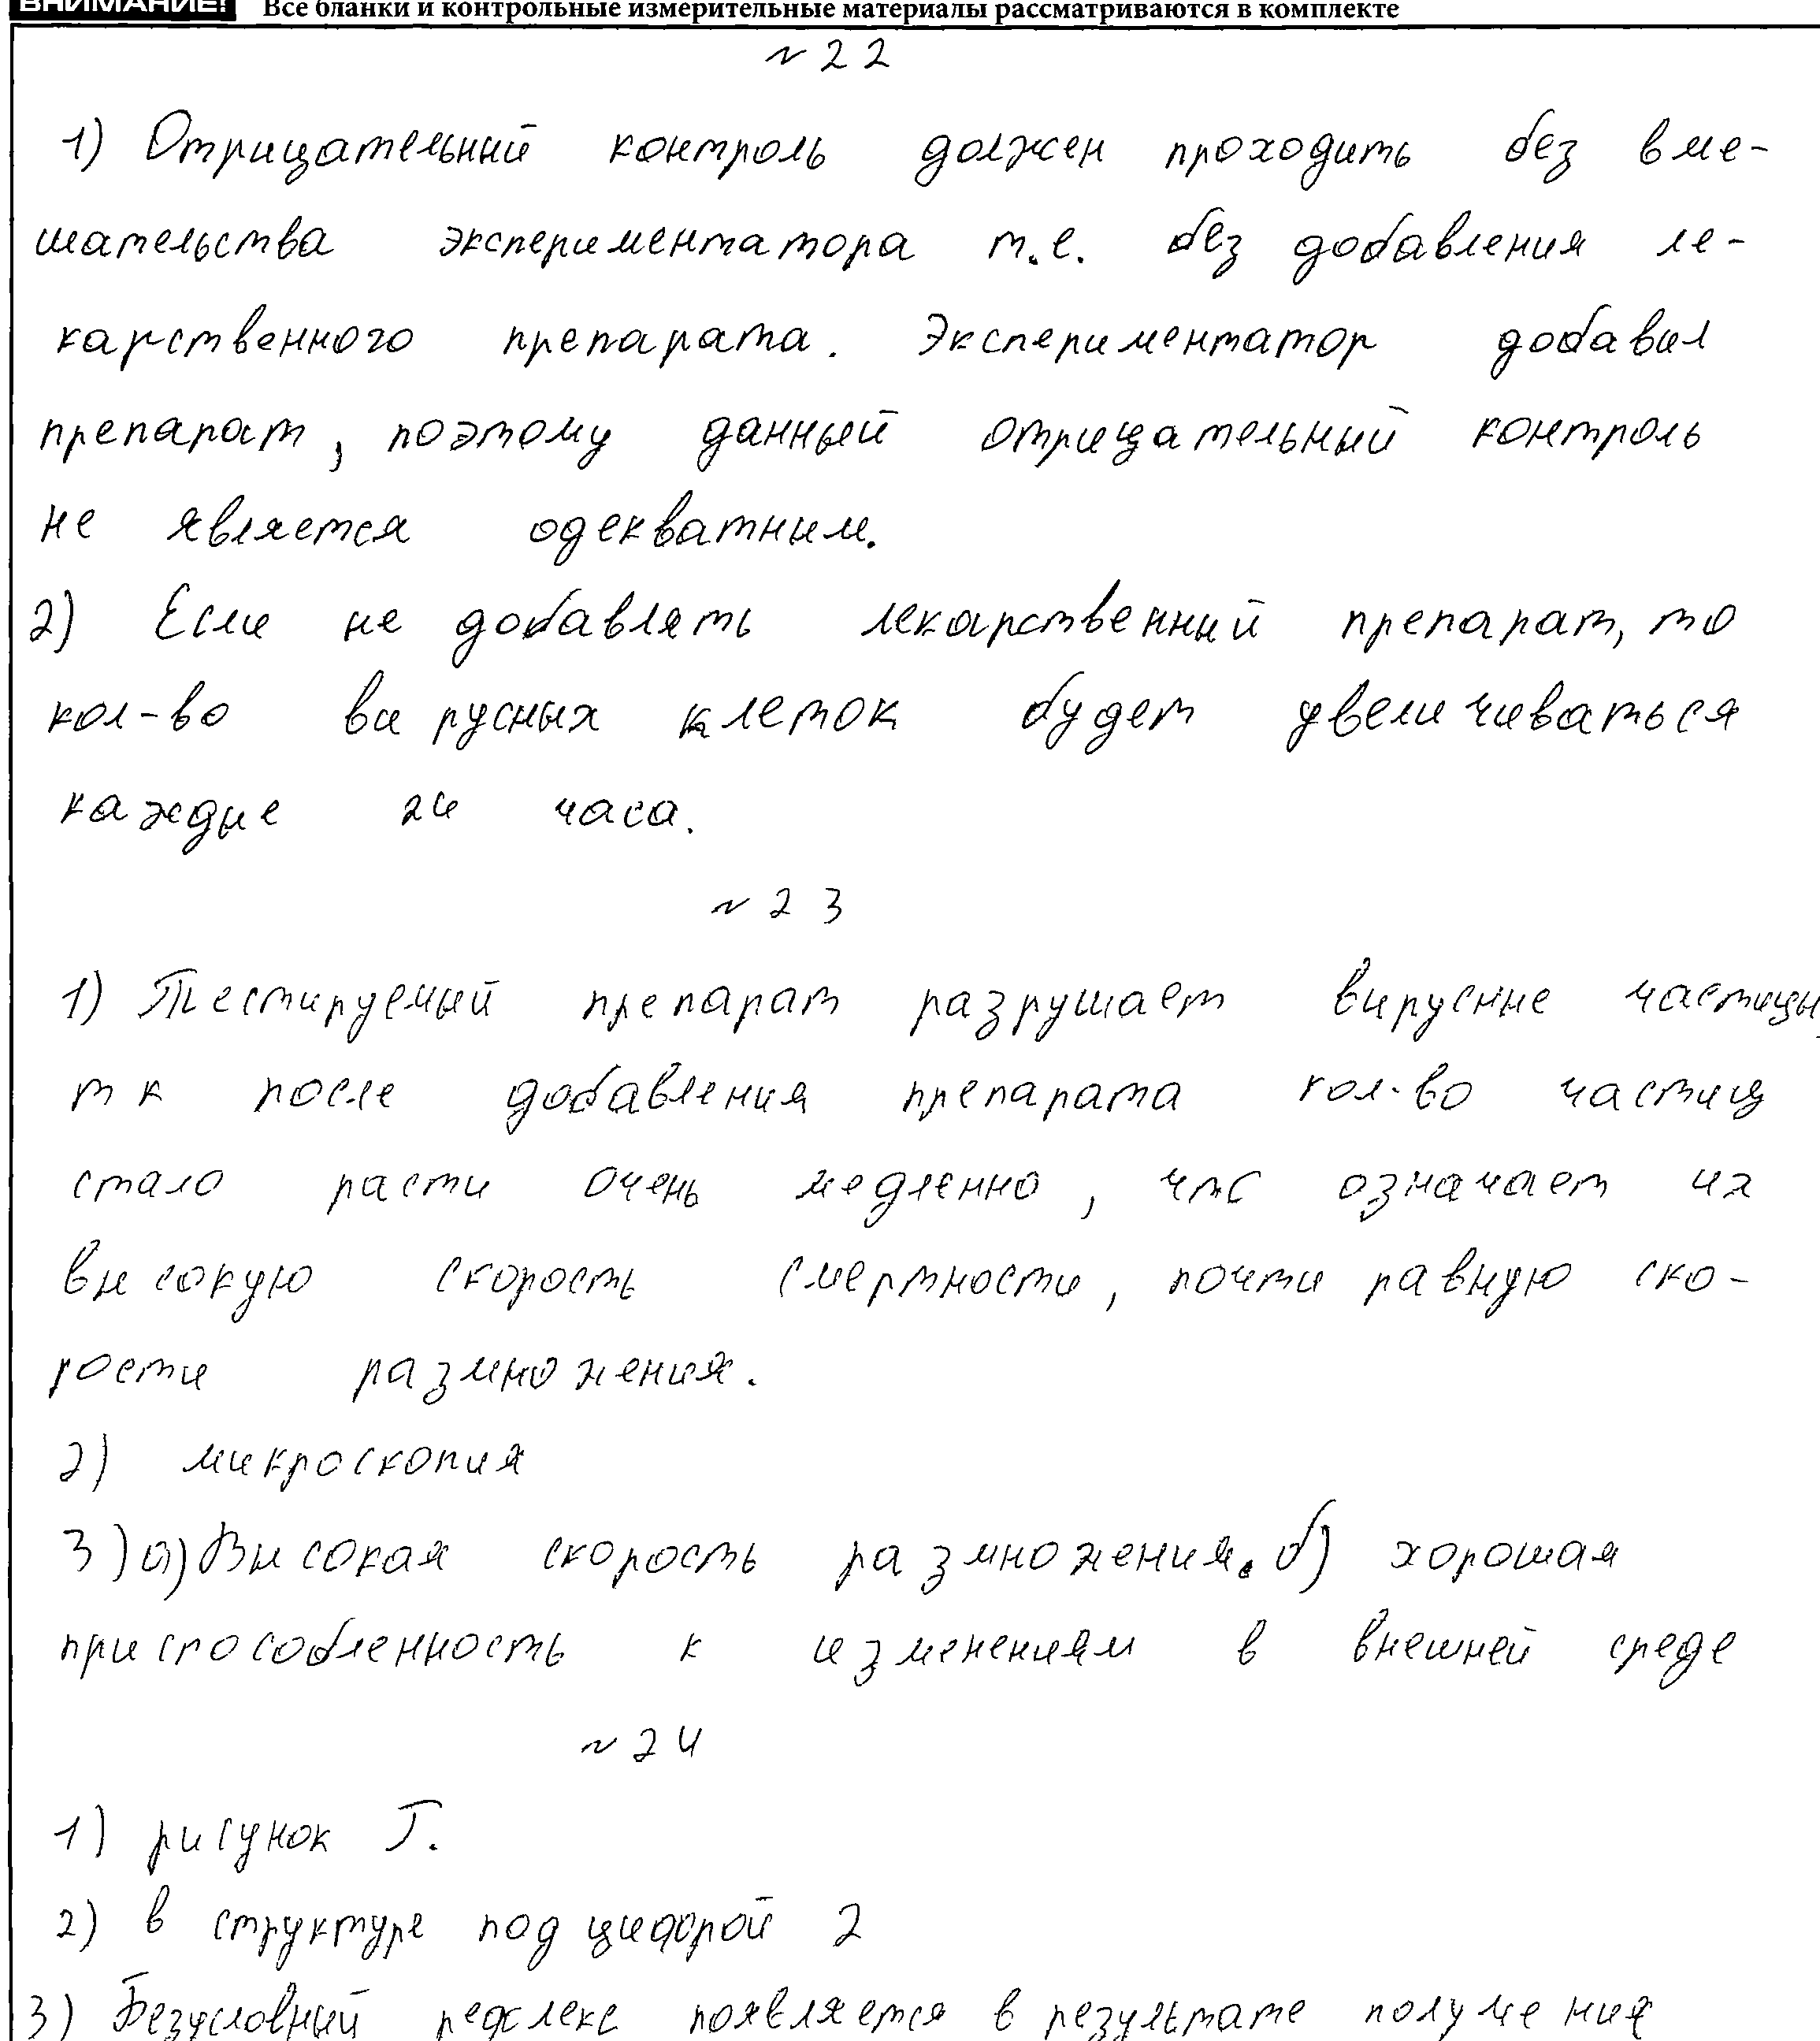 ВНИМАНИЕ! Все бланки и контрольные измерительные материалы рассматриваются в комплекте
№22
1) Отрицательный контроль должен проходить без вме-
шательства экспериментатора т.е. без добавления ле-
карственного препарата. Экспериментатор добавил
препарат, поэтому данный отрицательный контроль
не является одекватным.
2) Если не добавлять лекарственный препарат, то
кол-во вирусных клеток будет увеличиваться
каждые 24 часа.
№23
1) Тестируемый препарат разрушает вирусные частицы,
тк после добавления препарата кол-во частиц
стало расти очень медленно, что означает их
высокую скорость смертности, почти равную ско-
рости размножения.
2) микроскопия
3) а) Высокая скорость размножения. б) хорошая
приспособленность к изменениям в внешней среде
№24
1) рисунок Г.
2) в структуре под цифрой 2
3) Безусловный рефлекс появляется в результате получения